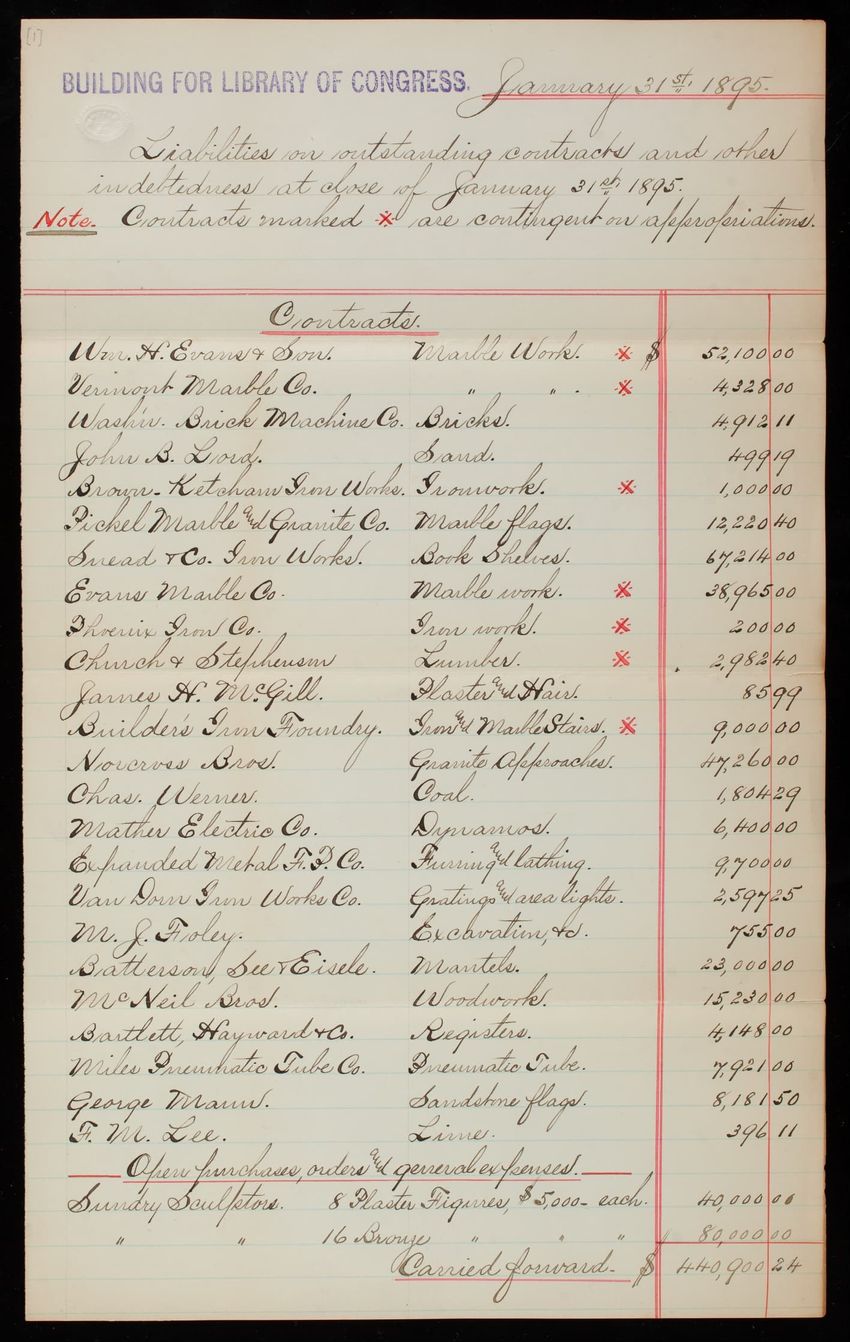 [1]
BUILDING FOR LIBRARY OF CONGRESS. January 31st, 1895.
Liabilities on outstanding contracts and other
indebtedness at close of January 31st, 1895.
Note. Contracts marked ※ are contingent on appropriations.
Contracts.
Wm. H. Evans & Son. Marble Work. ※ $ 52,100 00
Vermont Marble Co. " " . ※ 4,328 00
Wash'n. Brick Machine Co. Bricks. 4,912 11
John B. Lord. Sand. 499 19
Brown-Ketcham Iron Works. Ironwork. ※ 1,000 00
Pickel Marble and Granite Co. Marble flags. 12,220 40
Snead & Co. Iron Works. Book Shelves. 67,214 00
Evans Marble Co. Marble work. ※ 38,965 00
Phoenix Iron Co. Iron work. ※ 200 00
Church & Stephenson Lumber. ※ 2,982 40
James H. McGill. Plaster and Hair. 85 99
Builder's Iron Foundry. Iron and Marble Stairs. ※ 9,000 00
Norcross Bros. Granite Approaches. 47,260 00
Chas. Werner. Coal. 1,804 29
Mather Electric Co. Dynamos. 6,400 00
Expanded Metal F. P. Co. Furring and lathing. 9,700 00
Van Dorn Iron Works Co. Gratings and area lights. 2,597 25
M. J. Foley. Excavation, &c. 755 00
Batterson, See & Eisele. Mantels. 23,000 00
McNeil Bros. Woodwork. 15,230 00
Bartlett, Hayward & Co. Registers. 4,148 00
Miles Pneumatic Tube Co. Pneumatic Tube. 7,921 00
George Mann. Sandstone flags. 8,181 50
F. M. Lee. Lime. 396 11
Open purchases, orders and general expenses.
Sundry Sculptors. 8 Plaster Figures, $5,000- each. 40,000 00
" " 16 Bronze " " " " 80,000 00
Carried forward- $ 440,900 24